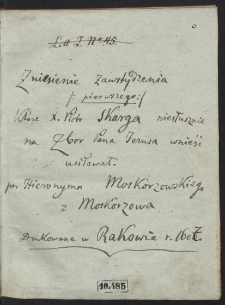 Litt. J. Nº 45.
Zniesienie zawstydzenia
/: pierwszego :/
Które X. Piotr Skarga niesłusznie
na Zbor Pana Jezusa wnieść
usiłował.
pr. Hieronyma Moskorzowskiego
z Moskorzowa
Drukowane w Rakowie r. 1607
10.185